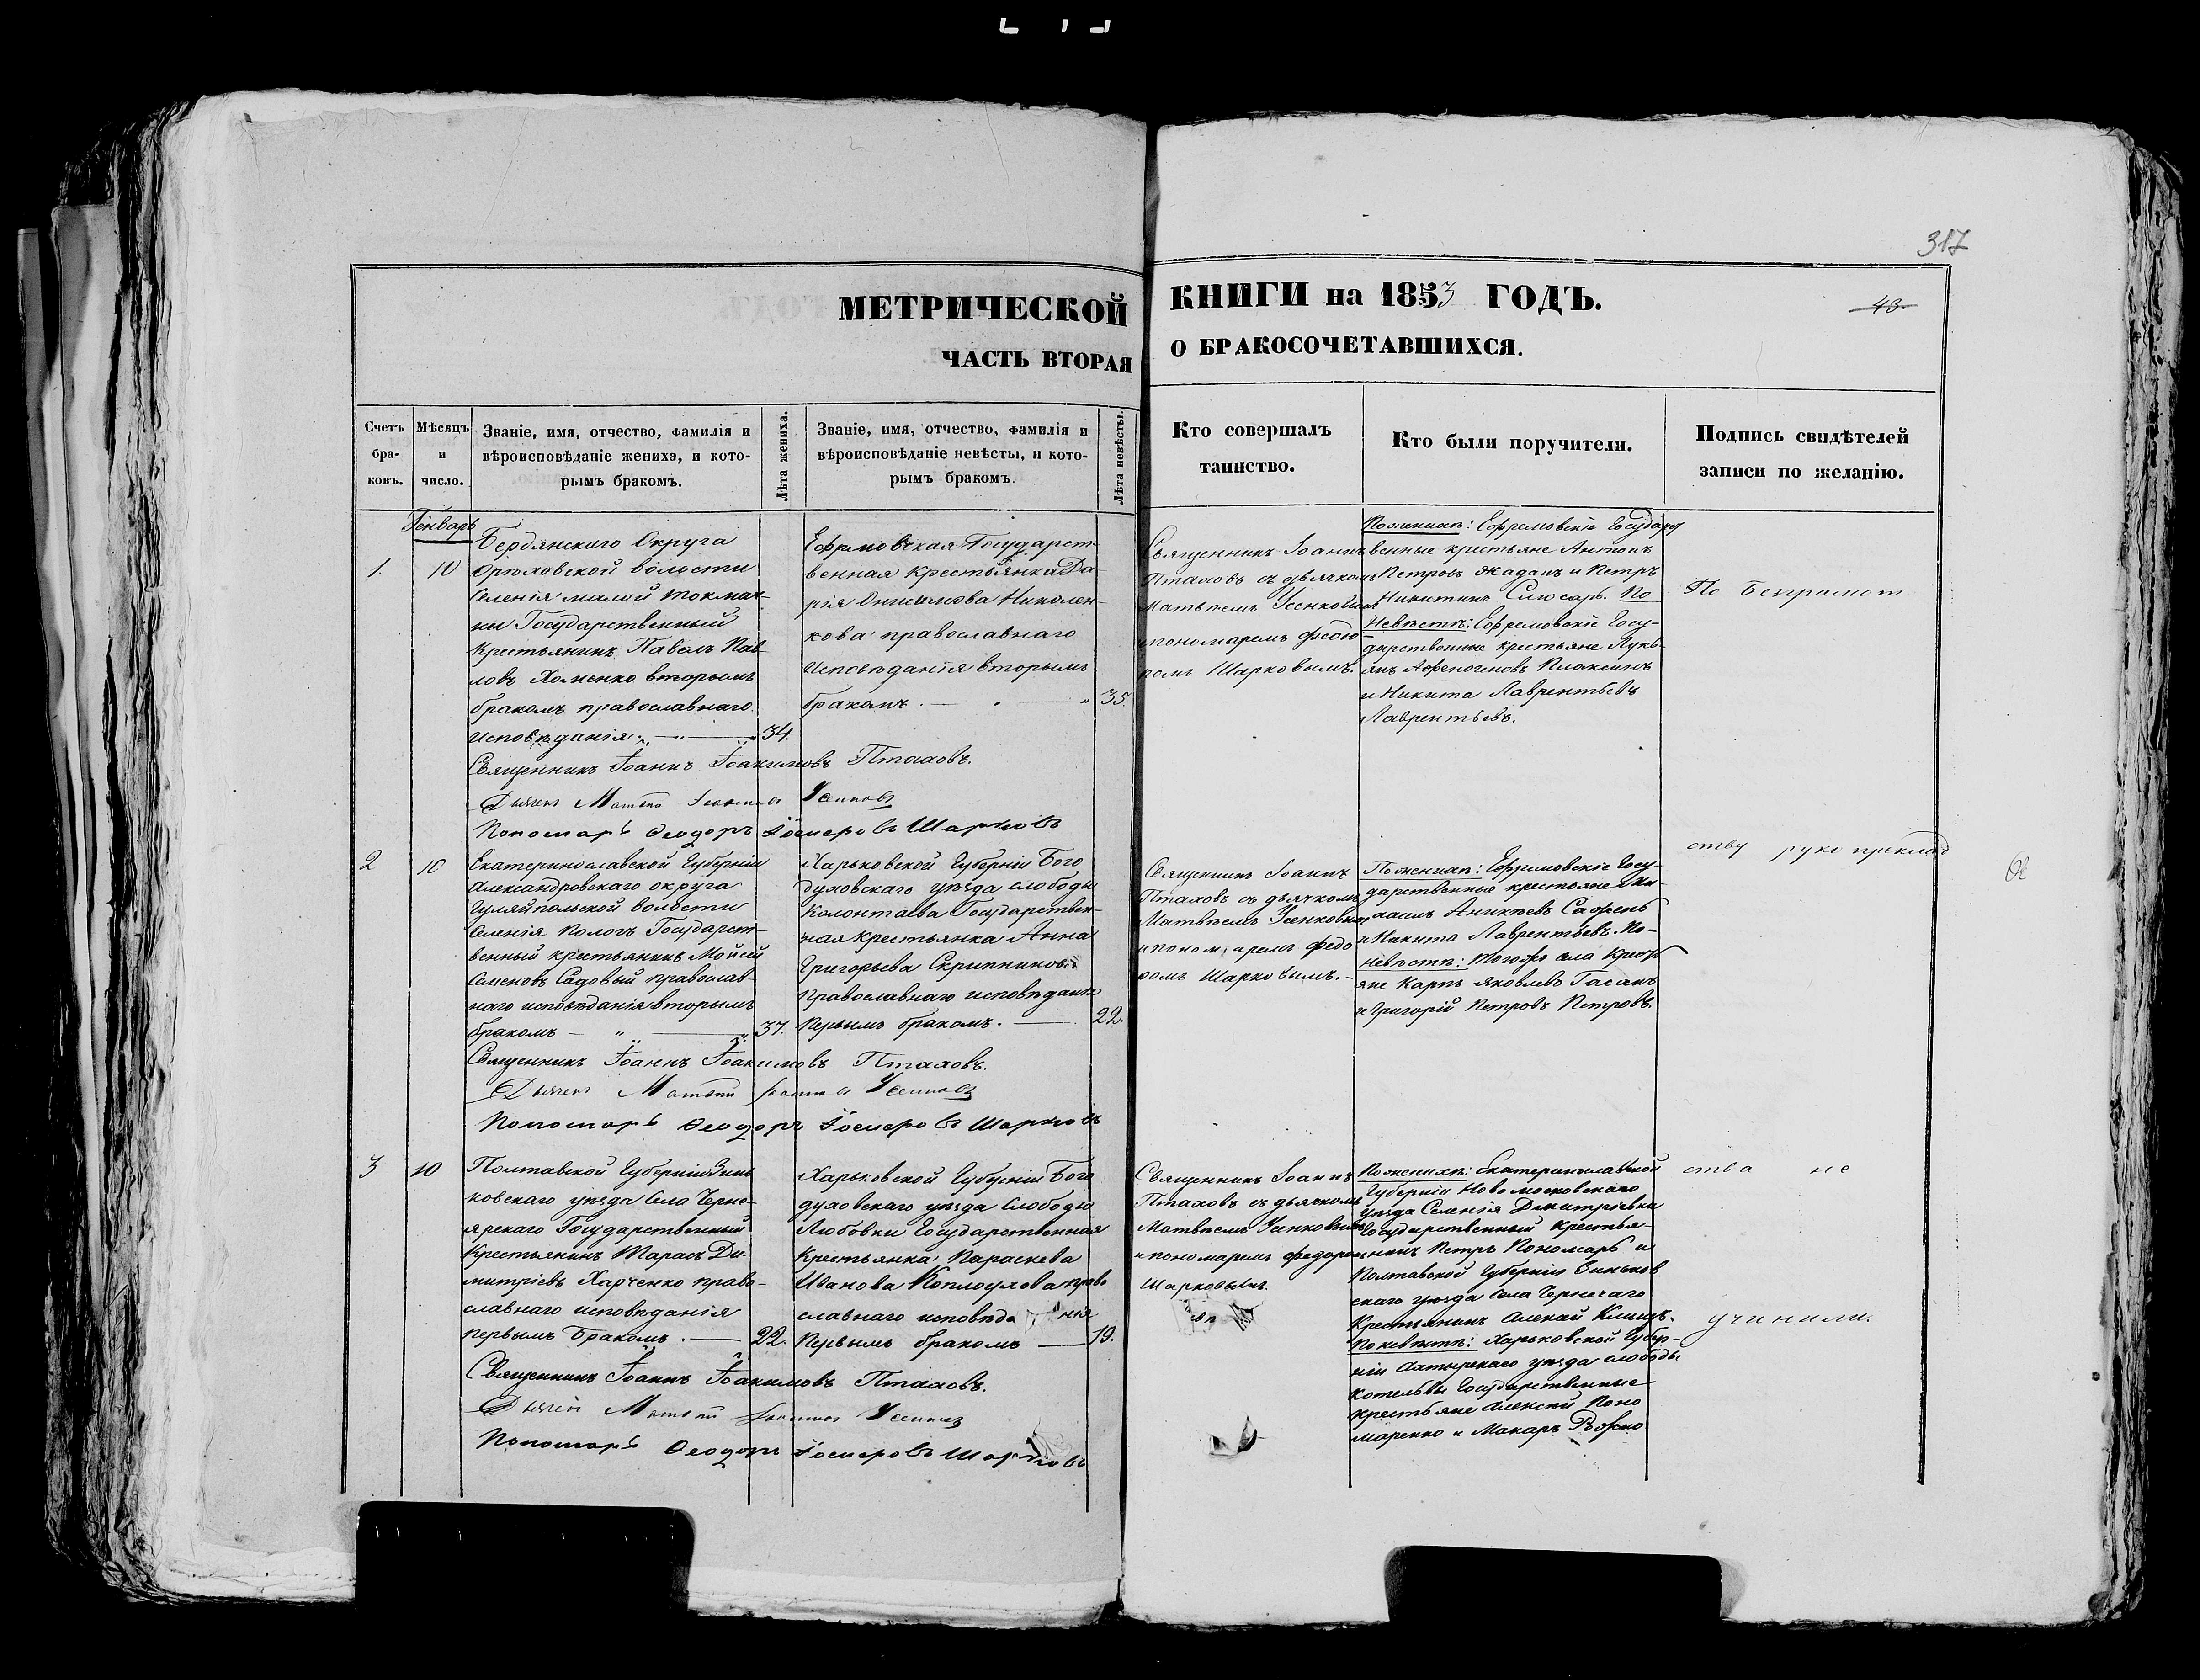 317
МЕТРИЧЕСКОЙ КНИГИ на 1853 ГОДЪ.
43
ЧАСТЬ ВТОРАЯ О БРАКОСОЧЕТАВШИХСЯ.
Счетъ бра-ковъ.
Мѣсяцъ и число.
Званіе, имя, отчество, фамилія и
вѣроисповѣданіе жениха, и кото-
рымъ бракомъ.
Лѣта жениха.
Званіе, имя, отчество, фамилія и
вѣроисповѣданіе невѣсты, и кото-
рымъ бракомъ.
Лѣта невѣсты.
Кто совершалъ
таинство.
Кто были поручители.
Подпись свидѣтелей
записи по желанію.
Генварь
1
10
Бердянскаго Округа
Орѣховской волости
селенія малой токмач-
ки Государственный
Крестьянинъ Павелъ Пав-
ловъ Хоменко вторымъ
бракомъ православнаго
исповѣданія
34.
Ефремовская Государст-
венная Крестьянка Да-
рія Николен-
кова православнаго
исповѣданія вторымъ
бракомъ.
35.
Священникъ Іоаннъ
Птаховъ съ дьячкомъ
Матѣемъ Усенковымъ
и пономаремъ Федо-
ромъ Шарковымъ.
По женихѣ: Ефремовскіе Государст
венные крестьяне Антонъ
Петровъ Жаданъ и Петръ
Никитинъ Слюсарь. По
Невѣстѣ: Ефремовскіе Госу-
дарственные крестьяне Лукь-
янъ Афеногеновъ Плаксинъ
и Никита Лаврентьевъ
Лаврентьевъ.
По безграмот
Священникъ Іоаннъ Іоакимовъ Птаховъ.
Дьячекъ Матѳей Усенковъ
Пономарь Ѳеодоръ Шарковъ
2
10
Екатеринославской Губерніи
Александровскаго округа
Гуляйпольской волости
Селенія Пологъ Государст-
венный крестьянинъ Мойсей
Семеновъ Садовый православ-
наго исповѣданія вторымъ
бракомъ
37.
Харьковской Губерніи Бого
духовскаго уѣзда слободы
Колонтаева Государствен-
ная крестьянка Анна
Григорьева Скрипникова
православнаго исповѣданія
Первымъ бракомъ.
22.
Священникъ Іоаннъ
Птаховъ съ дьячкомъ
Матѣемъ Усенковымъ
и пономаремъ Федо
ромъ Шарковымъ.
По женихѣ: Ефремовскіе Госу-
дарственные крестьяне Ми-
хаилъ Аникѣевъ
и Никита Лаврентьевъ. По-
невѣстѣ: Тогожъ села Крестья
яне Карпъ Яковлевъ Гасанъ
и Григорій Петровъ Петровъ.
ству руко приклад
Священникъ Іоаннъ Іоакимовъ Птаховъ.
Дьячекъ Матѳей Усенковъ
Пономарь Ѳеодоръ Шарковъ
3
10
Полтавской Губерніи Зинь
ковскаго уѣзда Села Черно-
ярскаго Государственный
Крестьянинъ Тарасъ Ди-
митріевъ Харченко право-
славнаго исповѣданія
Первымъ Бракомъ.
22.
Харьковской Губерніи Бого
духовскаго уѣзда Слободы
Любовки Государственная
Крестьянка Параскева
Иванова Коплоухова право
славнаго исповѣданія
Первымъ бракомъ
19.
Священникъ Іоаннъ
Птаховъ съ дьячкомъ
Матѣемъ Усенковымъ
и пономаремъ Федоромъ
Шарковымъ.
По женихѣ: Екатеринославской
Губерніи Новомосковскаго
уѣзда Селенія Дмитріевки
Государственный Крестья-
нинъ Петръ Пономарь и
Полтавской Губерніи Зиньков
скаго уѣзда Села
Крестьянинъ Алексій
По невѣстѣ: Харьковской Губер-
ніи Ахтырскаго уѣзда слободы
Котельвы Государственные
крестьяне Алексій Поно
маренко и Макаръ
ства не
учинили.
Священникъ Іоаннъ Іоакимовъ Птаховъ.
Дьячекъ Матѳей Усенковъ
Пономарь Ѳеодоръ Шарковъ